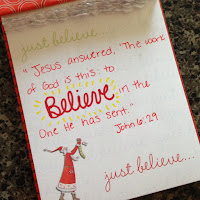 just believe...
"Jesus answered, 'The work
of God is this: to
Believe in the
One He has sent."
John 6:29
just believe...